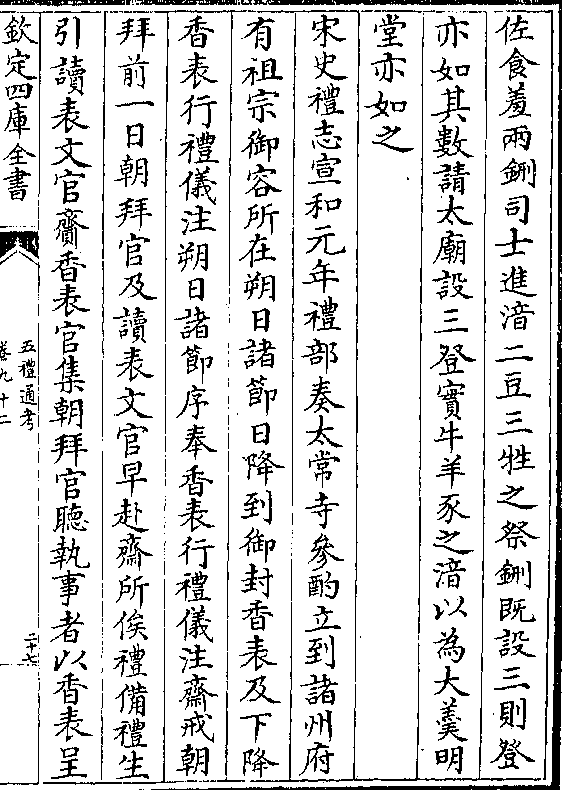 佐食羞兩鉶司士進湇二豆三牲之祭鉶既設三則登
亦如其數請太廟設三登實牛羊豕之湇以為大羮明
堂亦如之
宋史禮志宣和元年禮部奏太常寺參酌立到諸州府
有祖宗御容所在朔日諸節日降到御封香表及下降
香表行禮儀注朔日諸節序奉香表行禮儀注齋戒朝
拜前一日朝拜官及讀表文官早赴齋所俟禮備禮生
引讀表文官齎香表官集朝拜官聽執事者以香表呈
欽定四庫全書
五禮通考
卷九十二
二十六